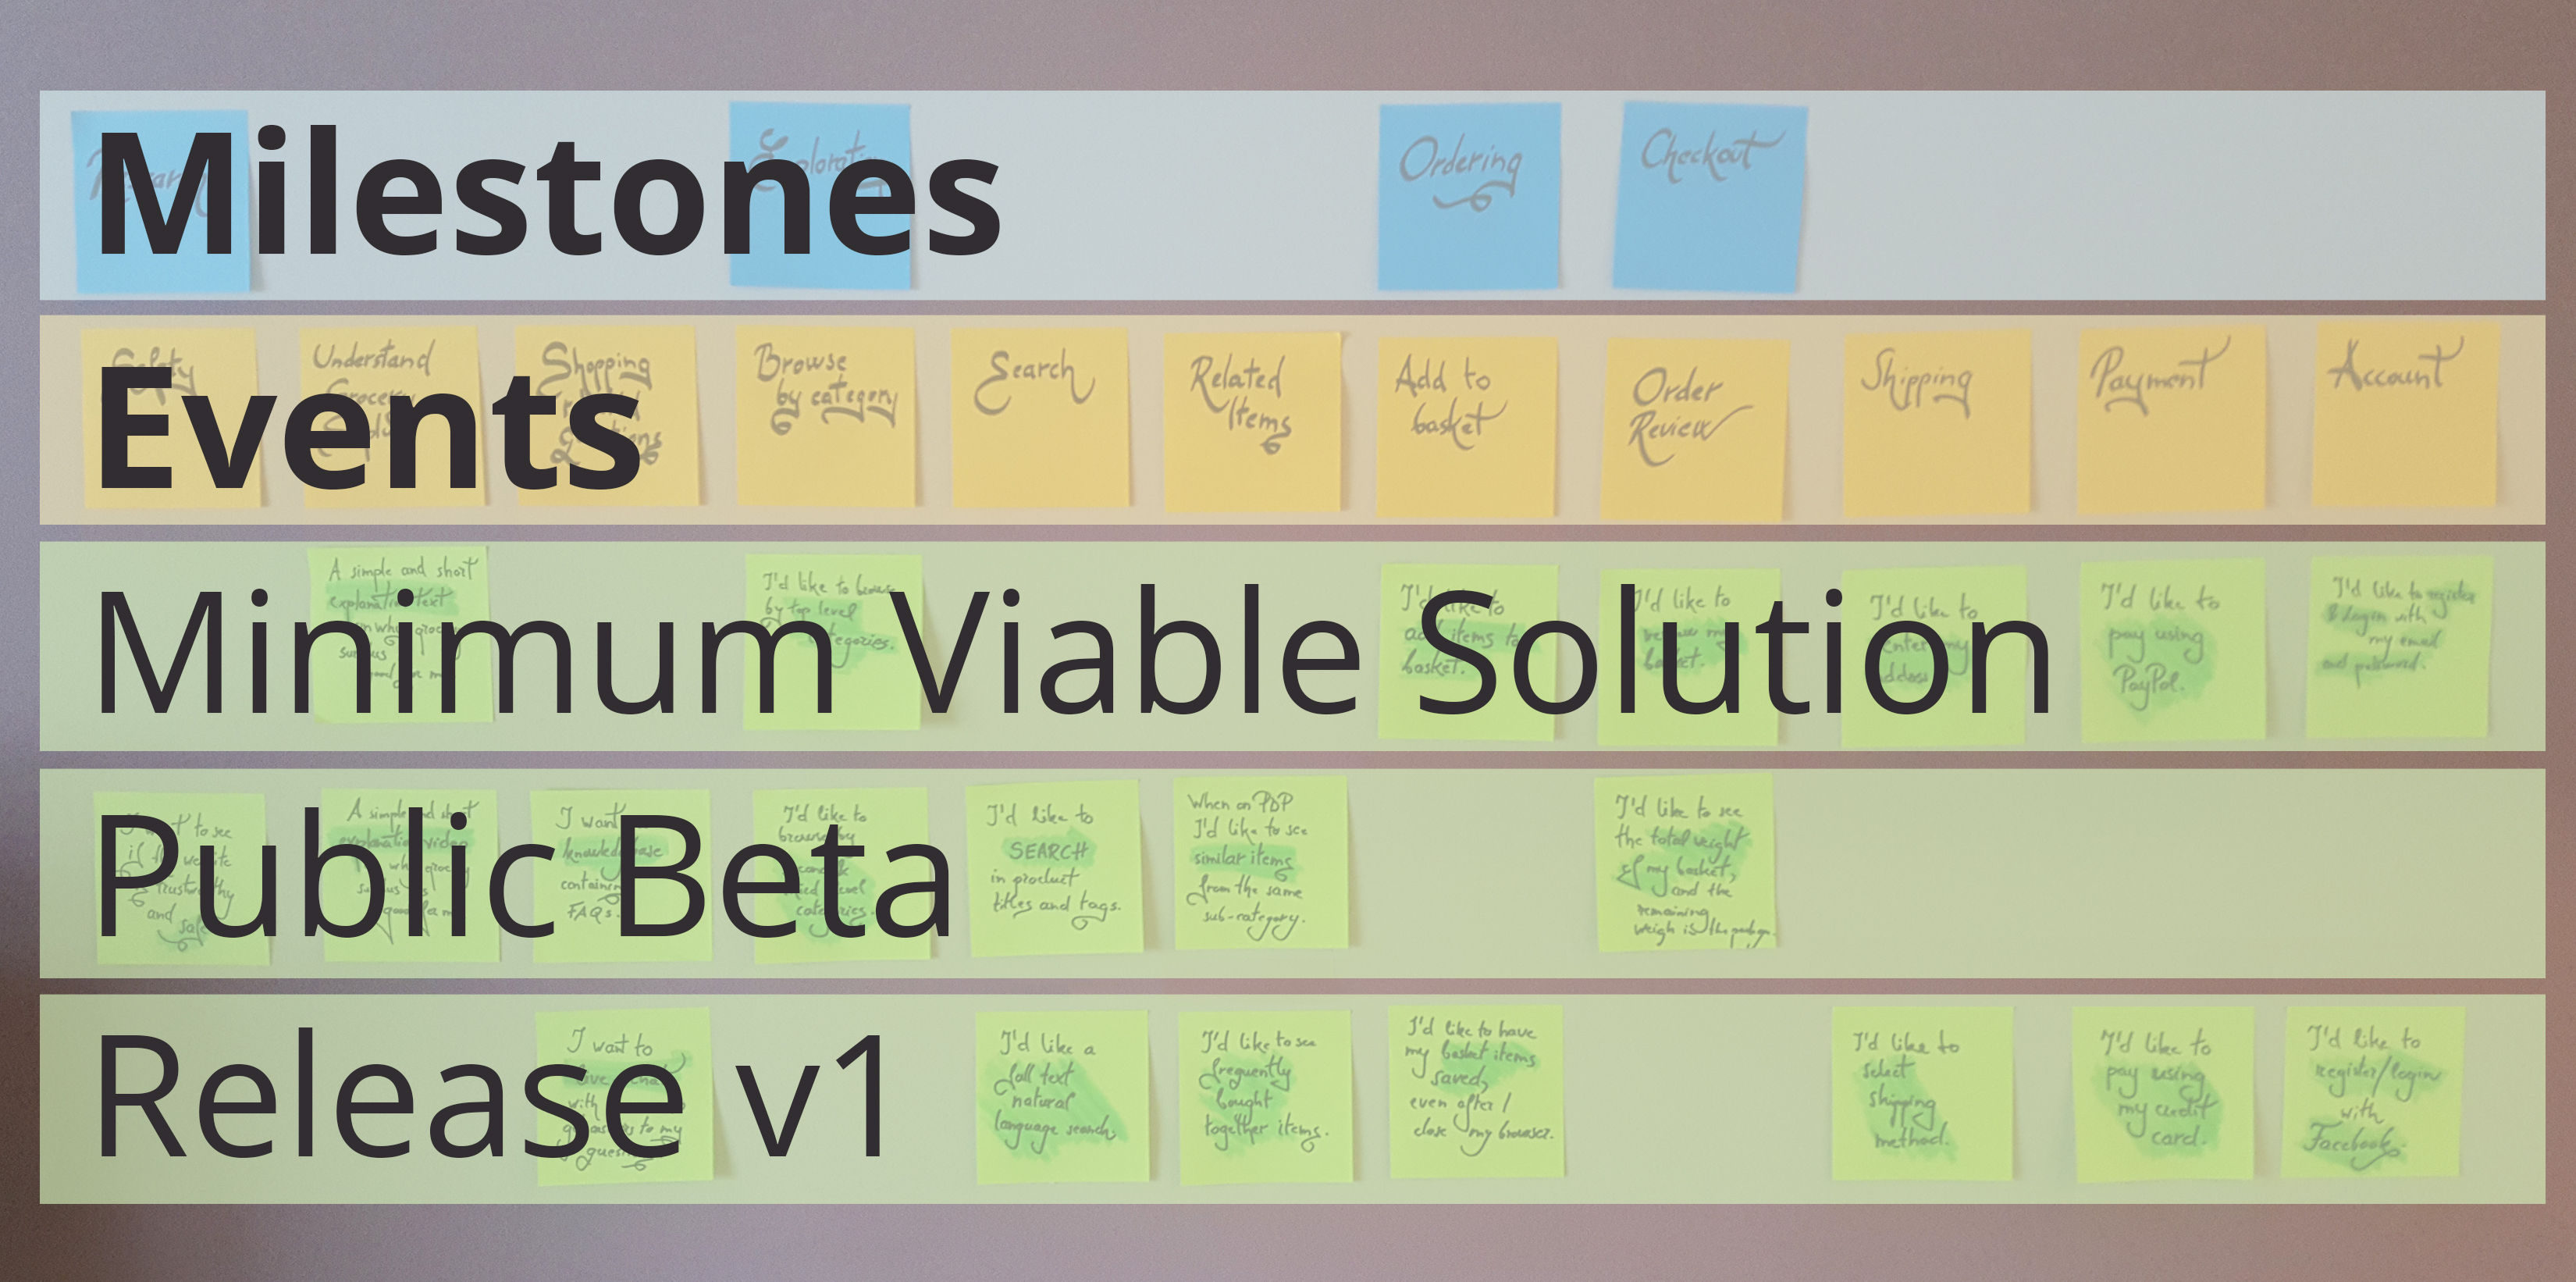 Milestones
Ordering
Checkout
Events
Safety
Understand
Grocery
Shopping
Browse
by category
Search
Related
Items
Add to
basket
Order
Review
Shipping
Payment
Account
Minimum Viable Solution
A simple and short
explanation text
I'd like to browse
by top level
categories.
I'd like to
add items to
basket.
I'd like to
review my
basket.
I'd like to
enter my
address
I'd like to
pay using
PayPal.
I'd like to register
& login with
my email
and password.
Public Beta
I want to see
if the website
is trustworthy
and safe
A simple and short
explanation video
I want
knowledge base
containing
FAQs.
I'd like to
browse by
categories.
I'd like to
SEARCH
in product
titles and tags.
When on PDP
I'd like to see
similar items
from the same
sub-category.
I'd like to see
the total weight
of my basket,
and the
remaining
weigh is the
Release v1
I want to
with
to my
I'd like a
full text
natural
language search
I'd like to see
frequently
bought
together items.
I'd like to have
my basket items
saved,
even after I
close my browser.
I'd like to
select
shipping
method.
I'd like to
pay using
my credit
card.
I'd like to
register/login
with
Facebook.